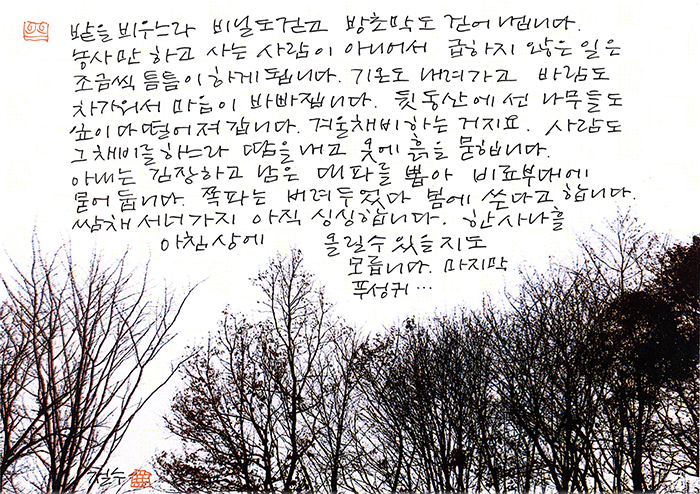 밭을 비우느라 비닐도 걷고 방초막도 걷어 냅니다.
농사만 하고 사는 사람이 아니어서 급하지 않은 일은
조금씩 틈틈이 하게 됩니다. 기온도 내려가고 바람도
차가워서 마음이 바빠집니다. 뒷동산에 선 나무들도
잎이 다 떨어져 갑니다. 겨울채비하는 거지요. 사람도
그 채비를 하느라 땀을 내고 옷에 흙을 묻힙니다.
아내는 김장하고 남은 대파를 뽑아 비료부대에
묻어 둡니다. 쪽파는 버려두었다 봄에 쓴다고 합니다.
쌈채 서너가지 아직 싱싱합니다. 한 사나흘
아침 상에 올릴 수 있을지도
모릅니다. 마지막
푸성귀…
철수